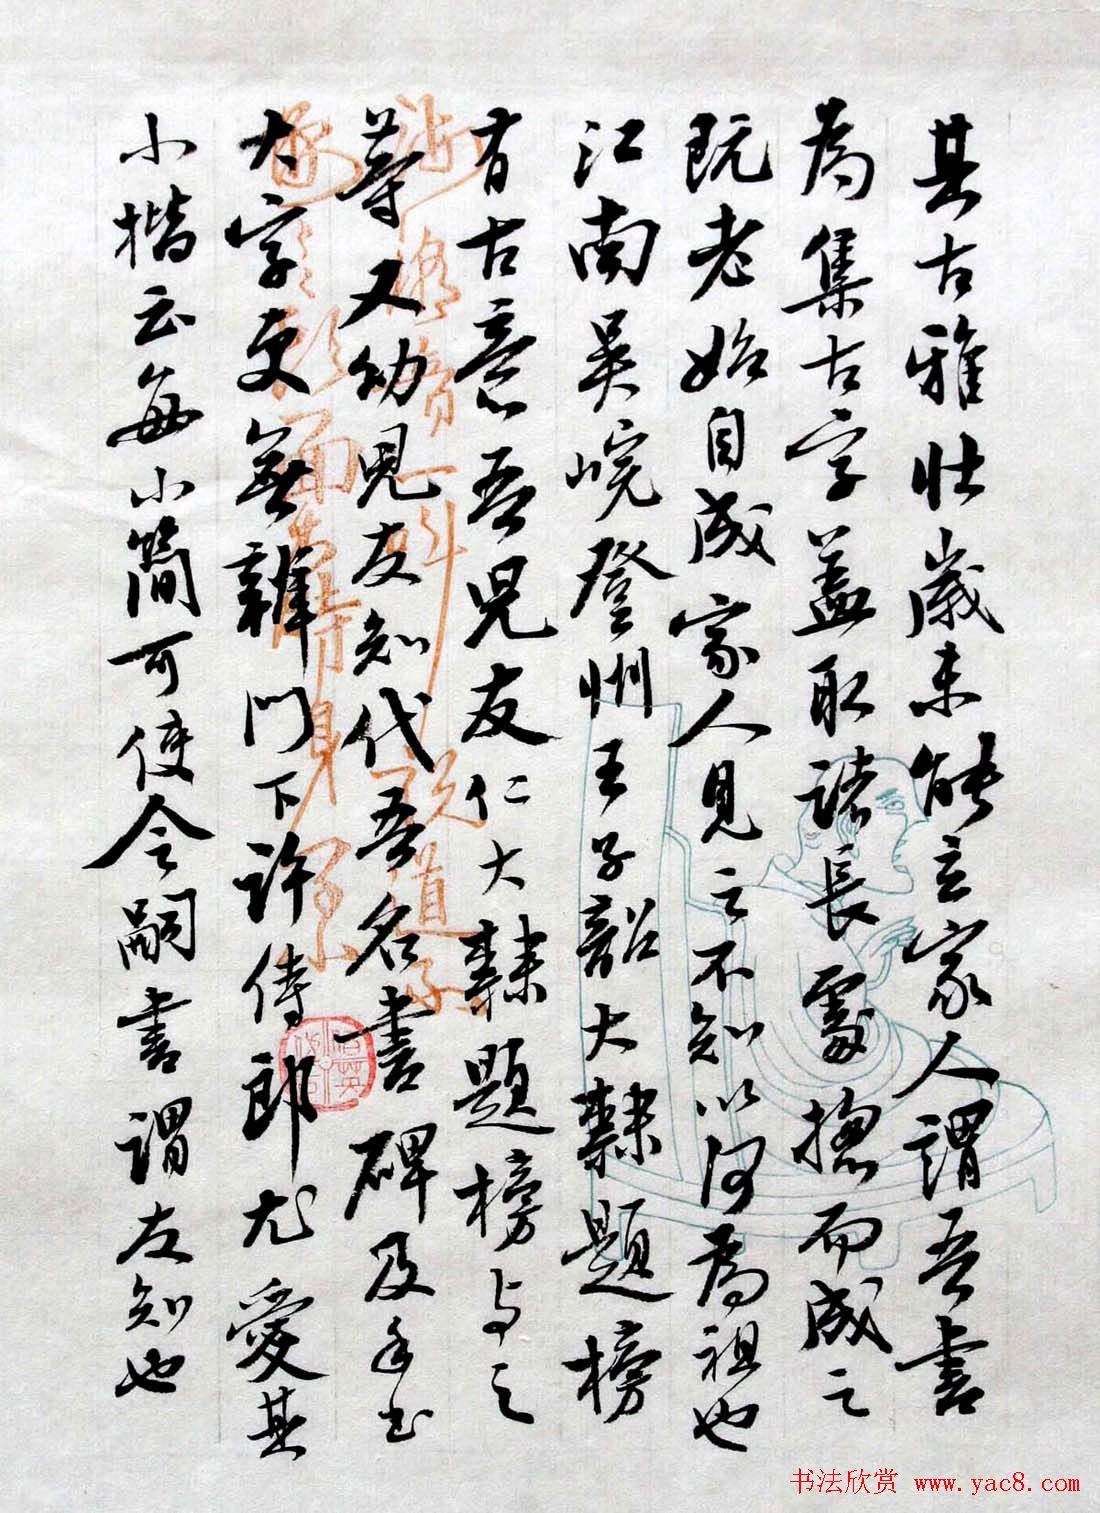 其古雅壮歳未能立家人謂吾書
為集古字盖取諸長處揔而成之
既老始自成家人見之不知以何為祖也
江南吴皖登州王子韶大隸題榜
有古意吾兒友仁大隸題榜与之
等又幼兒友知代吾名書碑及手書
大字更無辨門下許侍郎尤愛其
小楷云每小簡可使令嗣書謂友知也
书法欣赏 www.yac8.com